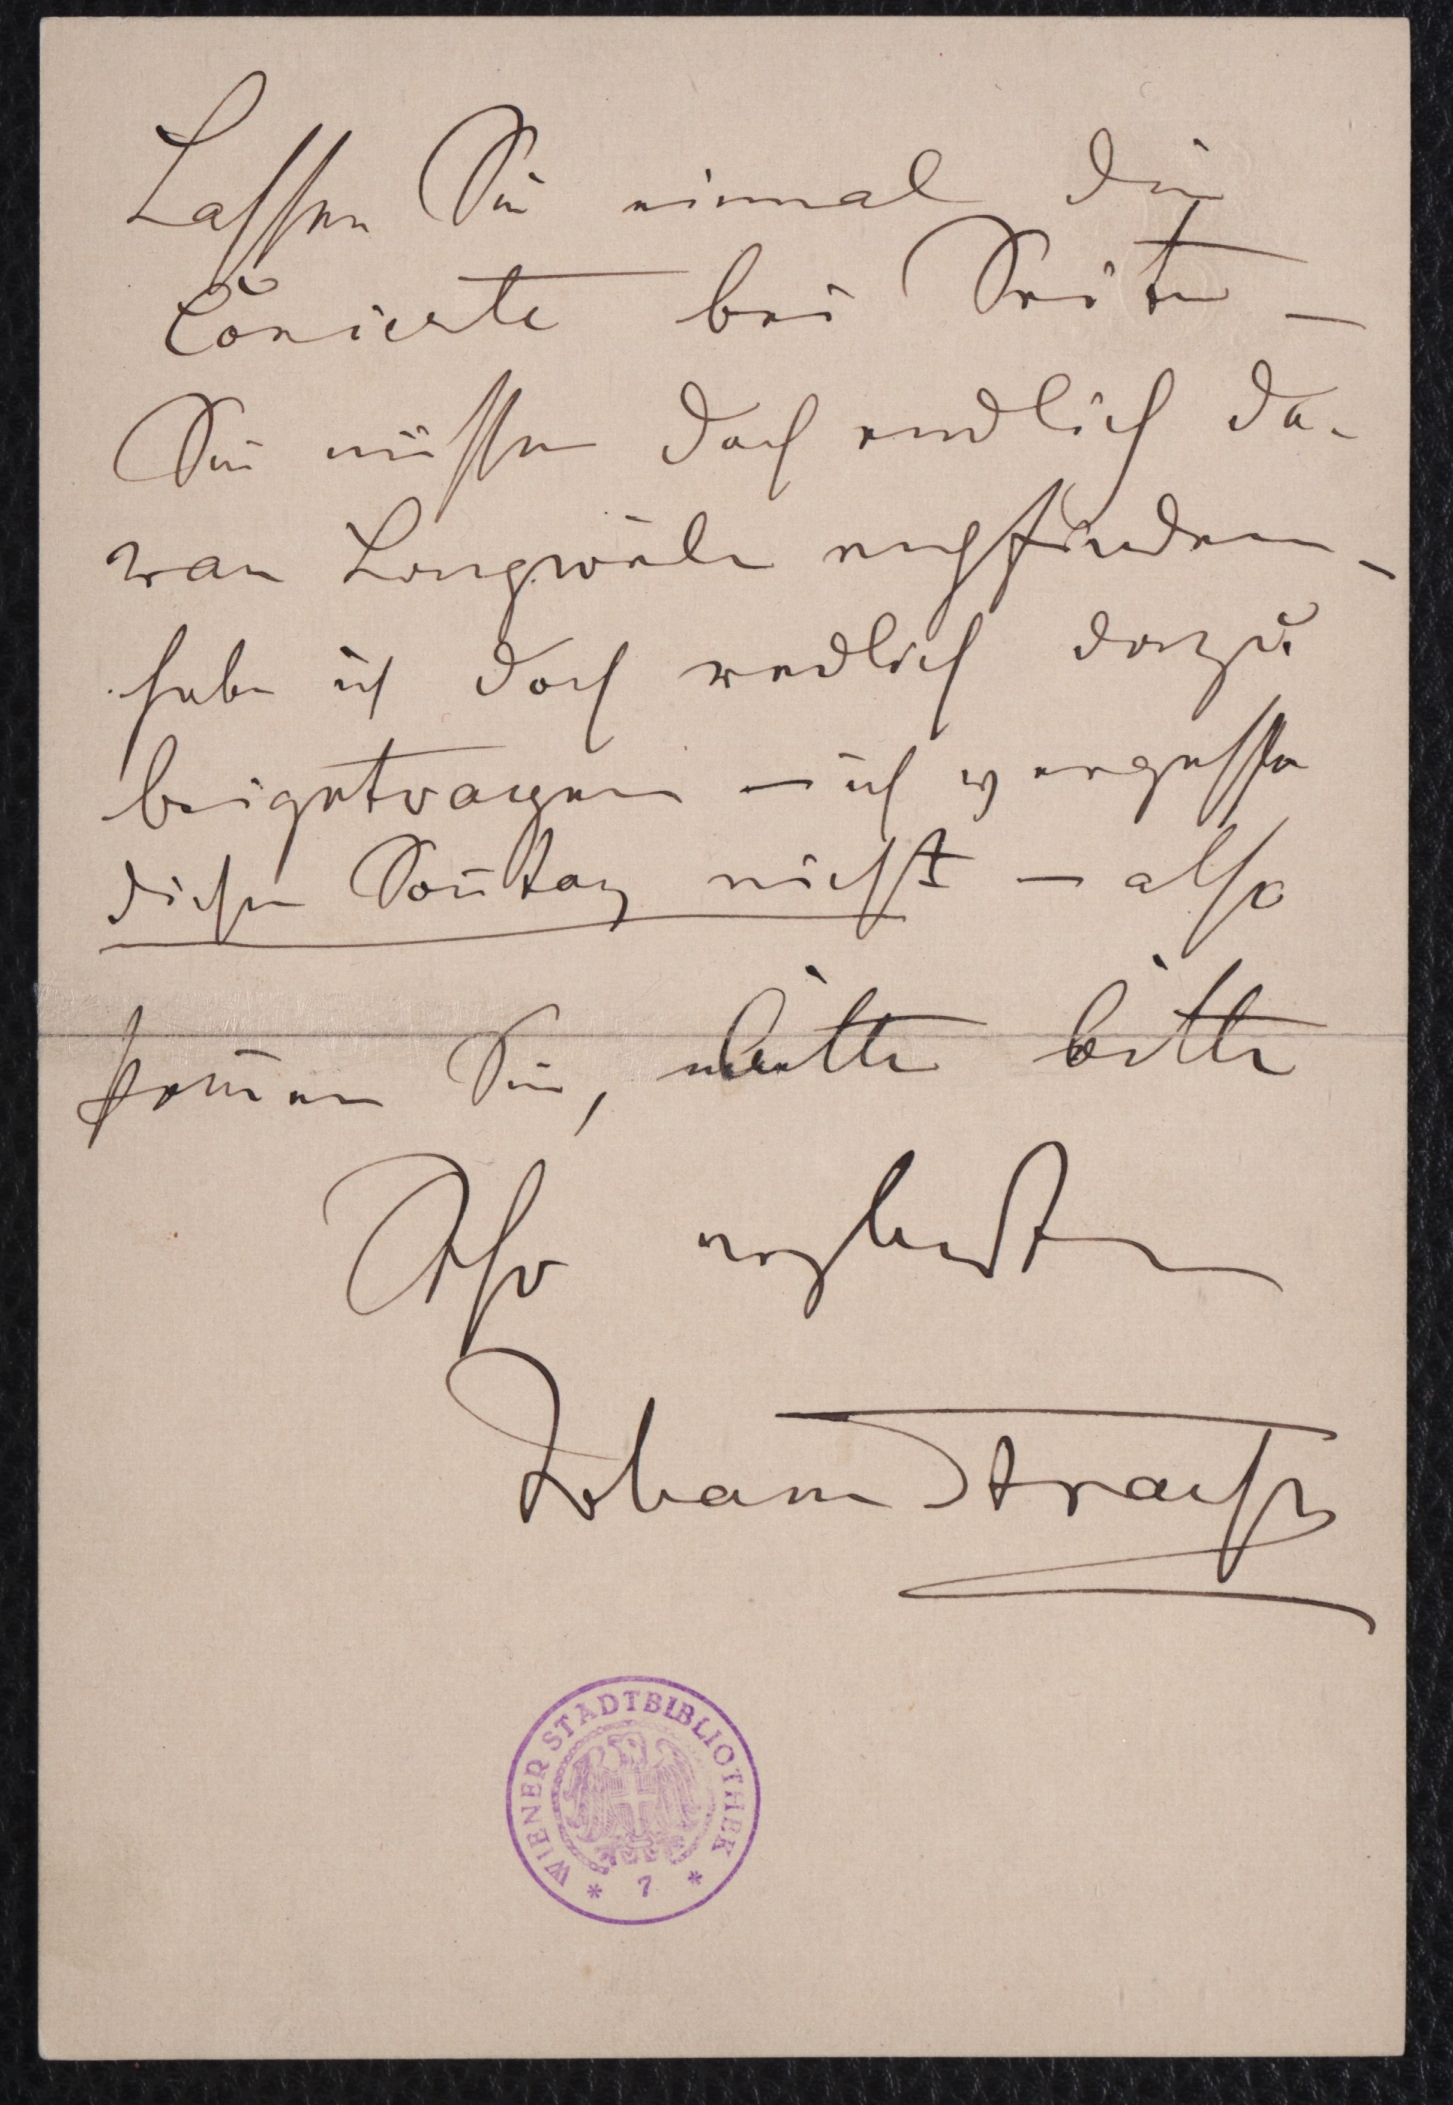 Lassen Sie einmal die
Concerte bei Seite –
Sie müssen doch endlich da-
ran Langweile empfinden –
habe ich doch redlich dazu
beigetragen – ich vergesse
diesen Sonntag nicht – also
kommen Sie, bitte bitte
Ihr ergebenster
Johann Strauss
WIENER STADTBIBLIOTHEK
* 7 *